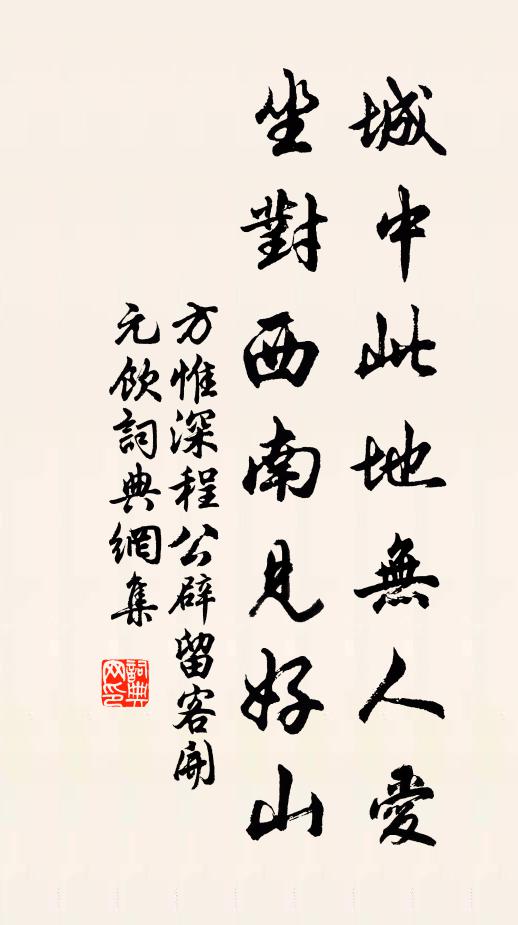 城中此地無人愛
坐對西南見好山
方惟深程公辟留客開
元飲詞典網集
詞典
网印